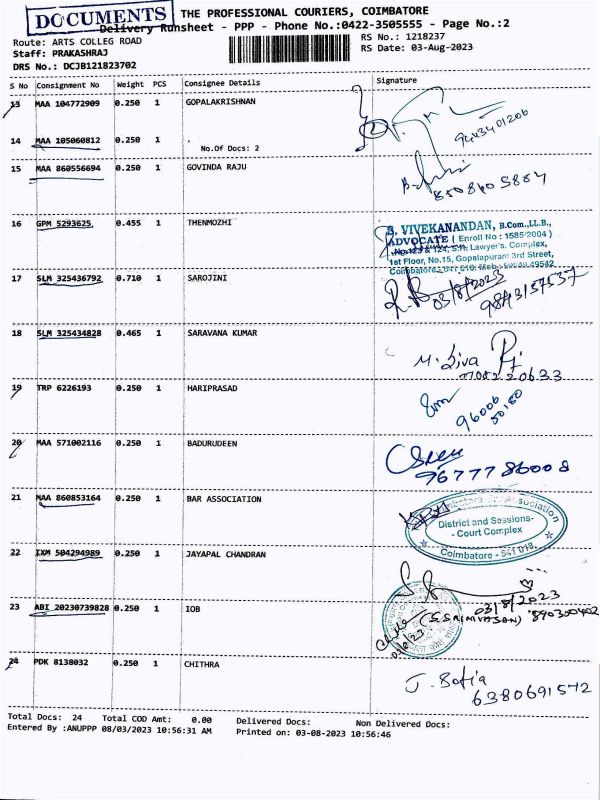 DOCUMENTS
THE PROFESSIONAL COURIERS, COIMBATORE
Delivery Runsheet - PPP - Phone No.:0422-3505555 - Page No.:2
Route: ARTS COLLEG ROAD
RS No.: 1218237
Staff: PRAKASHRAJ
RS Date: 03-Aug-2023
DRS No.: DCJB121823702
S No Consignment No Weight PCS Consignee Details Signature
13 MAA 104772909 0.250 1 GOPALAKRISHNAN
14 MAA 105060812 0.250 1 .
No.Of Docs: 2
15 MAA 860556694 0.250 1 GOVINDA RAJU
16 GPM 5293625 0.455 1 THENMOZHI
S. VIVEKANANDAN, B.Com.,LL.B.,
ADVOCATE ( Enroll No : 1585/2004 )
No.123 & 124, S.R. Lawyer's Complex,
1st Floor, No.15, Gopalapuram 3rd Street,
17 SLM 325436792 0.710 1 SAROJINI
03/8/2023
9843157537
18 SLM 325434828 0.465 1 SARAVANA KUMAR
M. Siva
19 TRP 6226193 0.250 1 HARIPRASAD
96006
50180
20 MAA 571002116 0.250 1 BADURUDEEN
9677786008
21 MAA 860853164 0.250 1 BAR ASSOCIATION
Association
District and Sessions-
- Court Complex
Coimbatore - 641 018
22 IXM 504294989 0.250 1 JAYAPAL CHANDRAN
23 ABI 20230739828 0.250 1 IOB
03/8/2023
(S.SRINIVASAN)
24 PDK 8138032 0.250 1 CHITHRA
J. Sofia
6380691572
Total Docs: 24 Total COD Amt: 0.00 Delivered Docs: Non Delivered Docs:
Entered By :ANUPPP 08/03/2023 10:56:31 AM Printed on: 03-08-2023 10:56:46